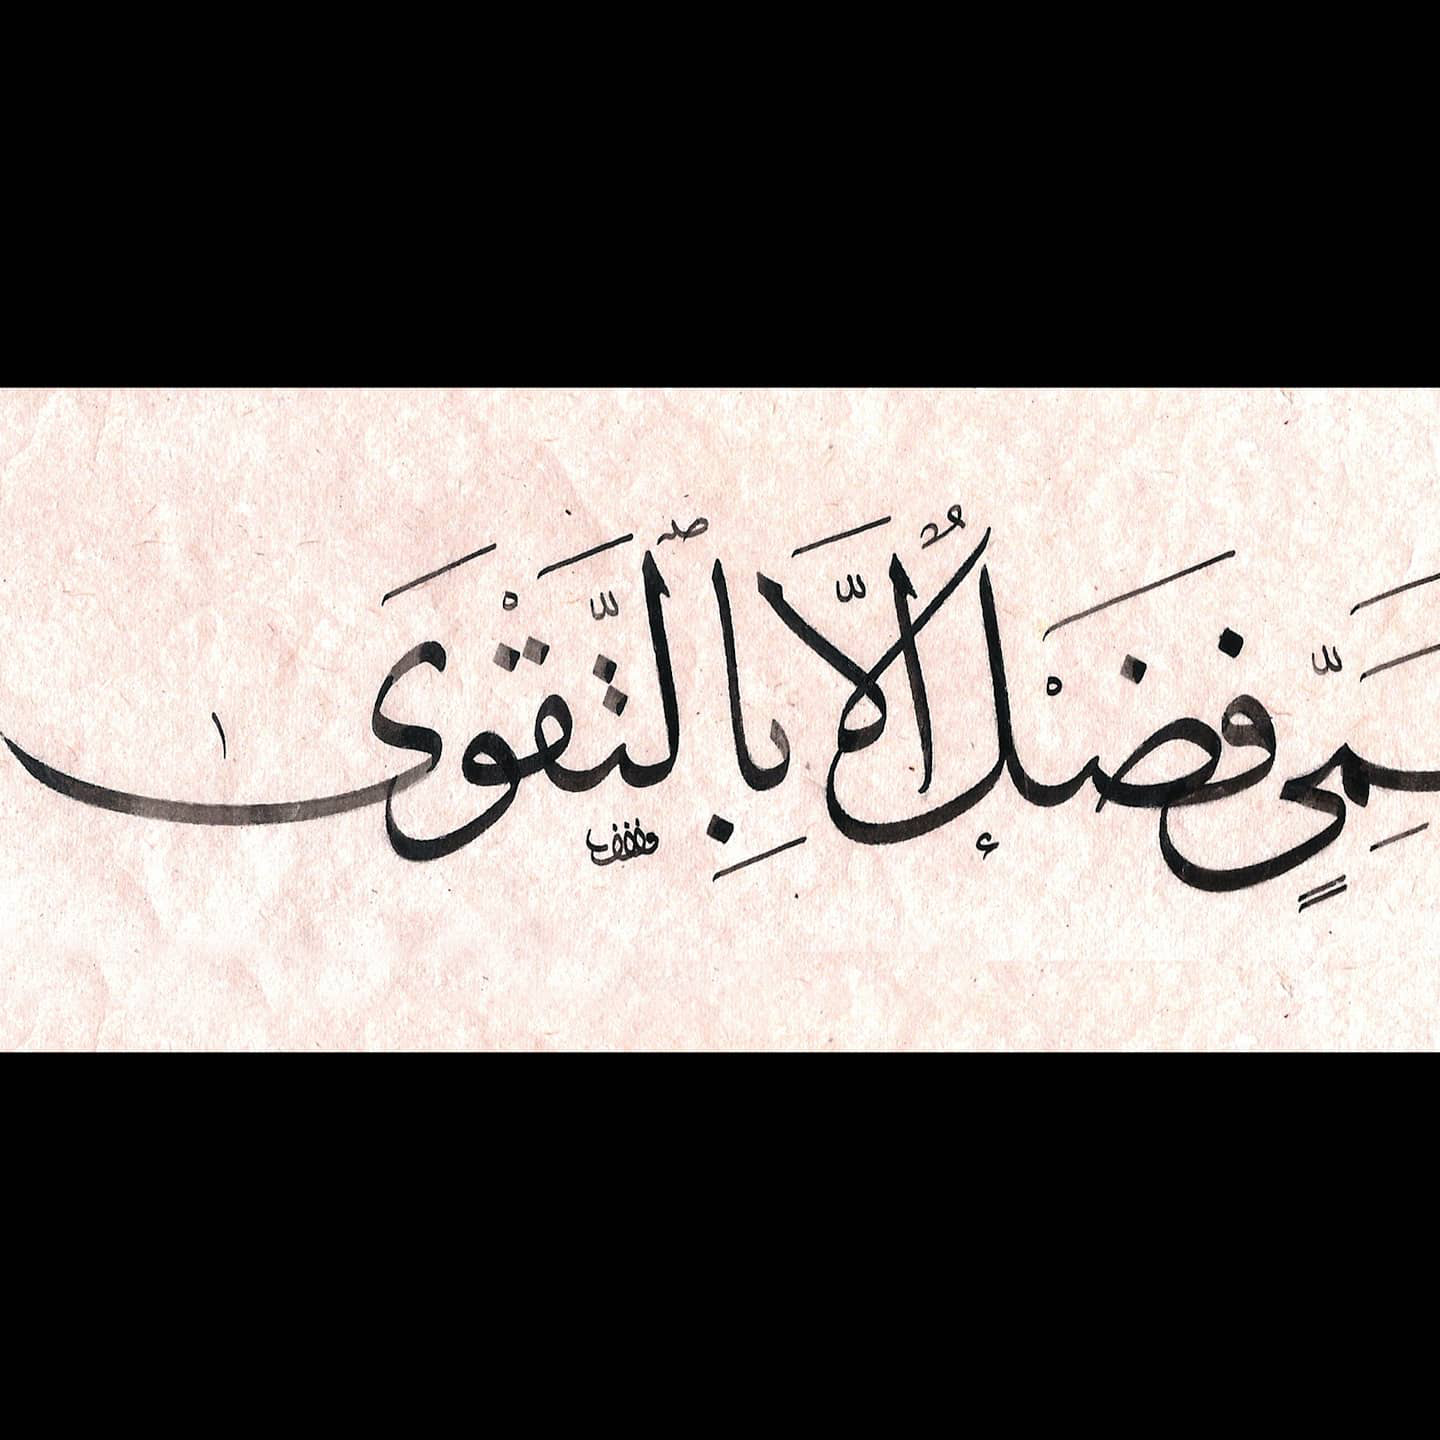 ـمِّيٍّ فَضْلٌ إلَّا بِالتَّقْوَى